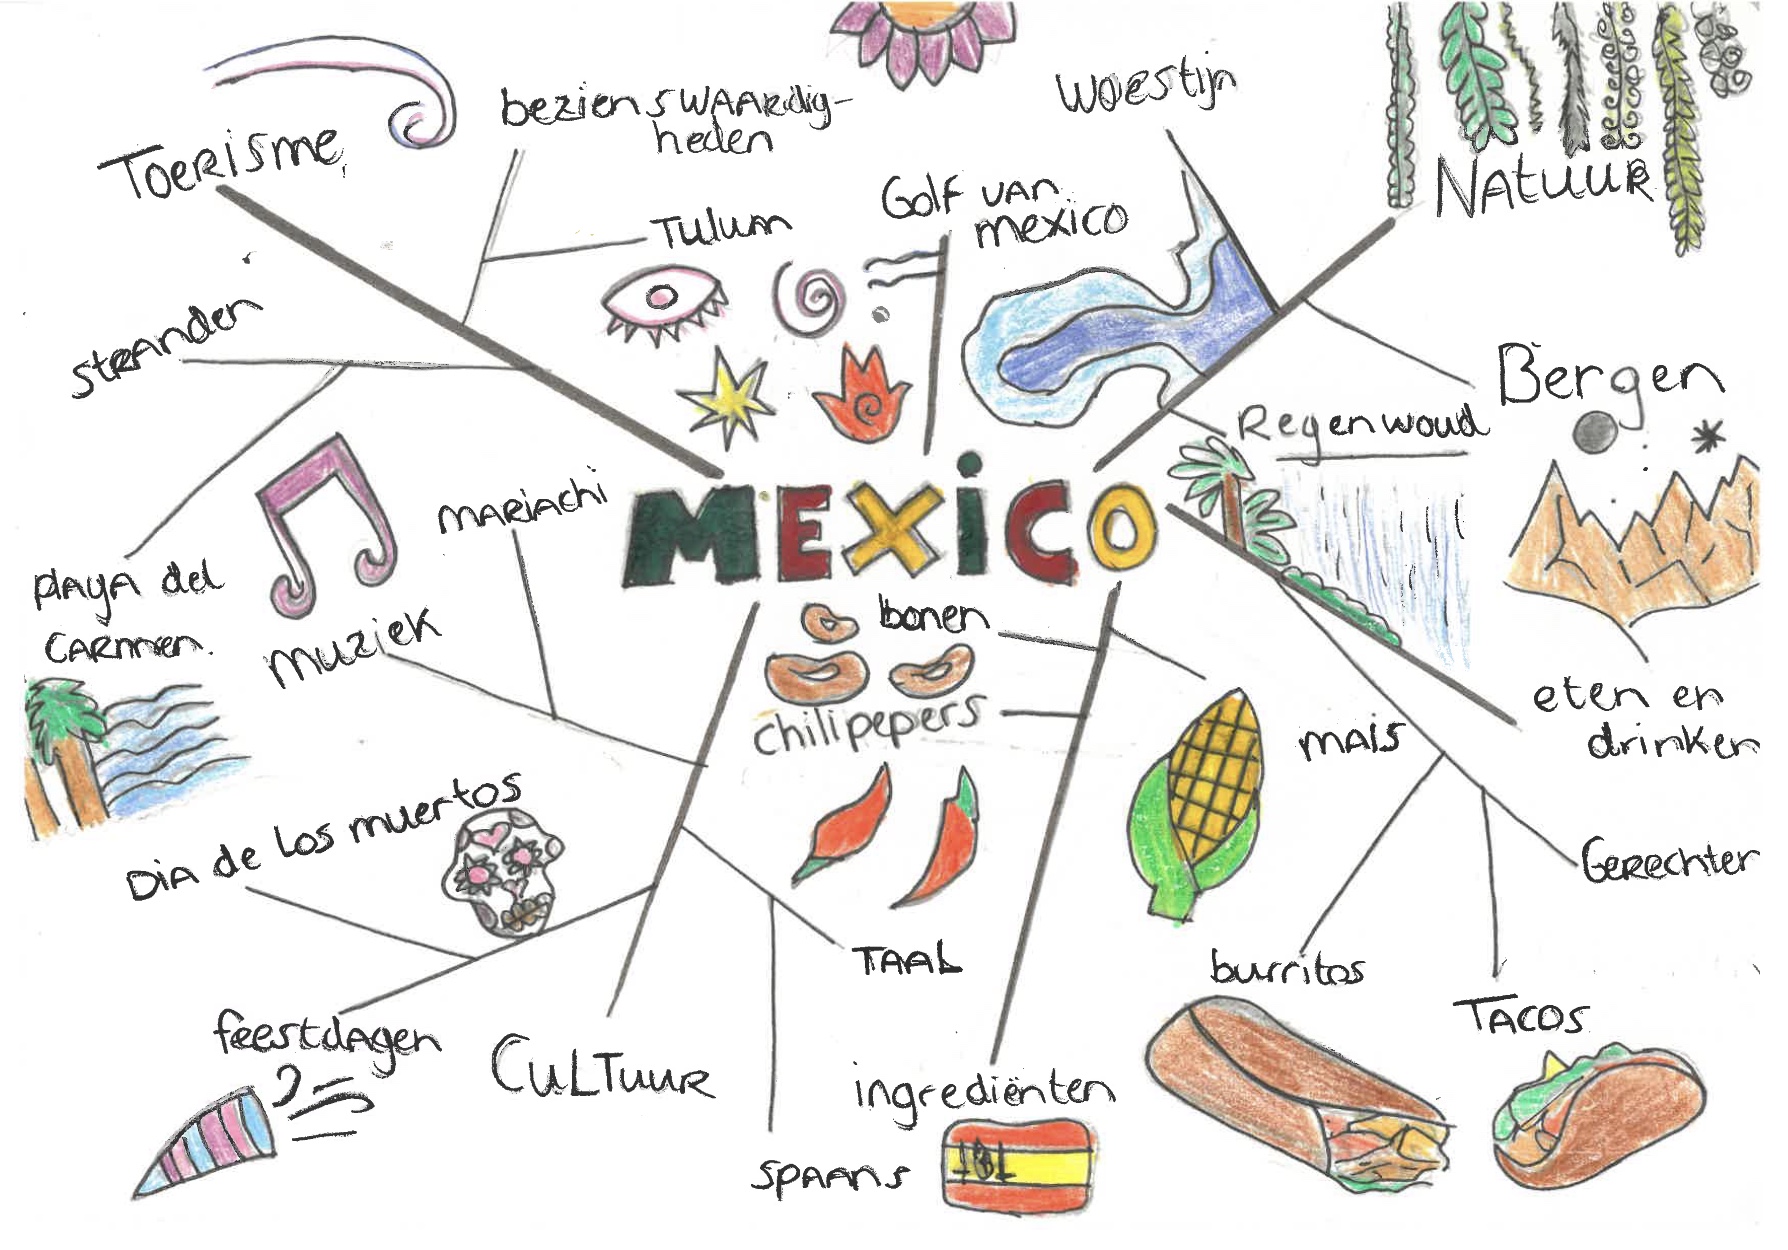 Toerisme
bezienswaardig-
heden
woestijn
Natuur
Tulum
Golf van
mexico
stranden
Bergen
Regenwoud
mariachi
MEXICO
playa del
carmen.
muziek
bonen
chilipepers
mais
eten en
drinken
Dia de Los muertos
Gerechten
Taal
burritos
Tacos
feestdagen
Cultuur
ingrediënten
spaans